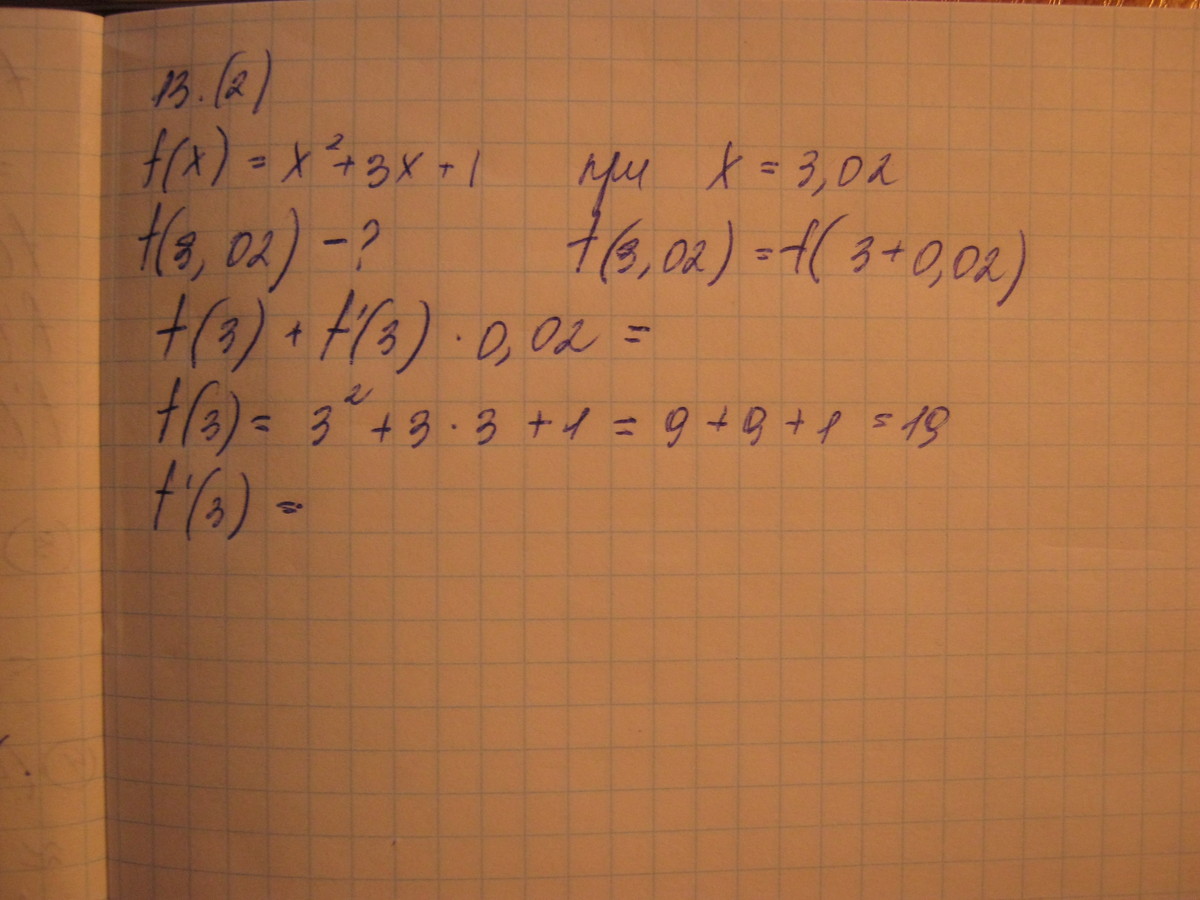 13.(2)
f(x) = x²+3x+1 при x = 3,02
f(3,02) -? f(3,02) = f( 3+0,02)
f(3) + f'(3) · 0,02 =
f(3) = 3² + 3 · 3 + 1 = 9 + 9 + 1 = 19
f'(3) =